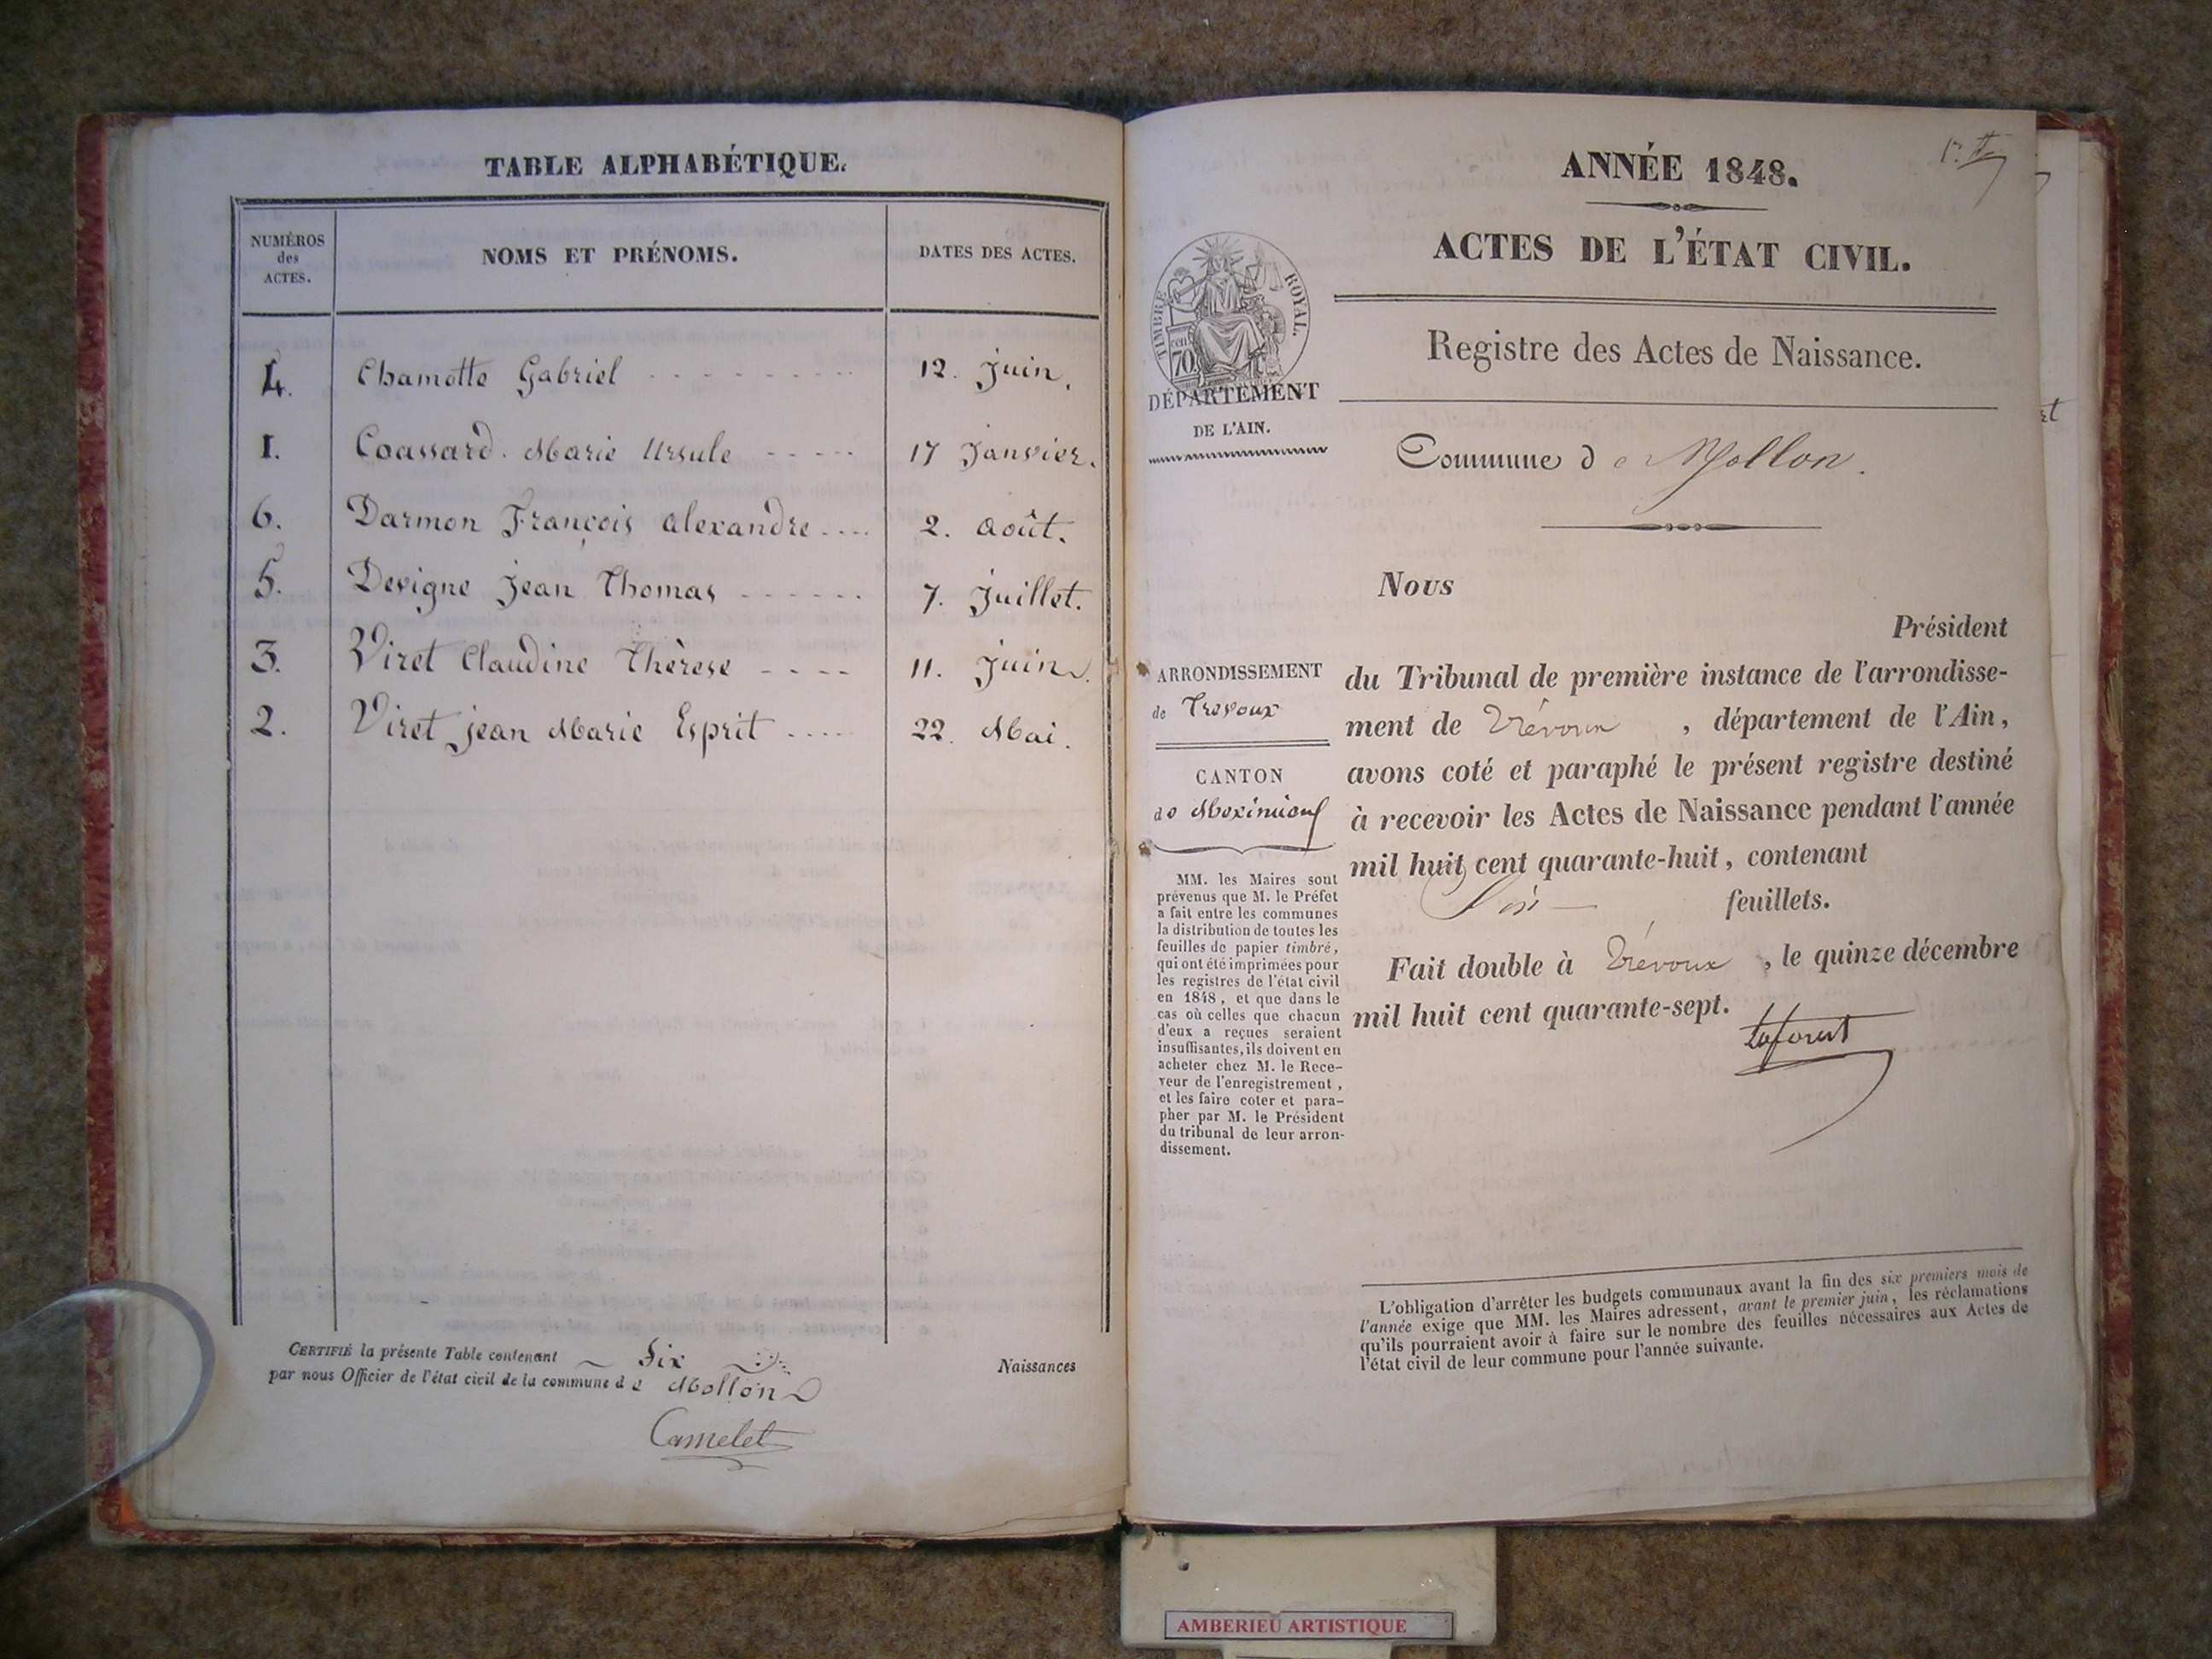 TABLE ALPHABÉTIQUE.
NUMÉROS
des
ACTES.
NOMS ET PRÉNOMS.
DATES DES ACTES.
4. Chamotte Gabriel 12. Juin.
1. Coassard. Marie Ursule 17 Janvier.
6. Darmon François Alexandre 2. Août.
5. Devigne Jean Thomas 7. Juillet.
3. Viret Claudine Thèrese 11. Juin.
2. Viret Jean Marie Esprit 22. Mai.
CERTIFIÉ la présente Table contenant Six Naissances
par nous Officier de l'état civil de la commune de Mollon
Camelet
ANNÉE 1848.
ACTES DE L'ÉTAT CIVIL.
TIMBRE ROYAL.
cent
70
Registre des Actes de Naissance.
DÉPARTEMENT
DE L'AIN.
Commune de Mollon.
Nous
Président
ARRONDISSEMENT
de Trevoux
CANTON
de
MM. les Maires sont
prévenus que M. le Préfet
a fait entre les communes
la distribution de toutes les
feuilles de papier timbré,
qui ont été imprimées pour
les registres de l'état civil
en 1848, et que dans le
cas où celles que chacun
d'eux a reçues seraient
insuffisantes, ils doivent en
acheter chez M. le Rece-
veur de l'enregistrement,
et les faire coter et para-
pher par M. le Président
du tribunal de leur arron-
dissement.
du Tribunal de première instance de l'arrondisse-
ment de Trévoux, département de l'Ain,
avons coté et paraphé le présent registre destiné
à recevoir les Actes de Naissance pendant l'année
mil huit cent quarante-huit, contenant
Six feuillets.
Fait double à Trévoux, le quinze décembre
mil huit cent quarante-sept.
L'obligation d'arrêter les budgets communaux avant la fin des six premiers mois de
l'année exige que MM. les Maires adressent, avant le premier juin, les réclamations
qu'ils pourraient avoir à faire sur le nombre des feuilles nécessaires aux Actes de
l'état civil de leur commune pour l'année suivante.
AMBERIEU ARTISTIQUE